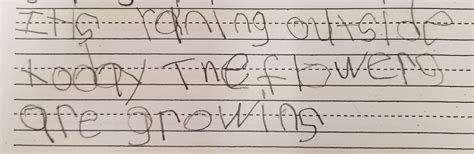 Its raining outside
today The flowers
are growing